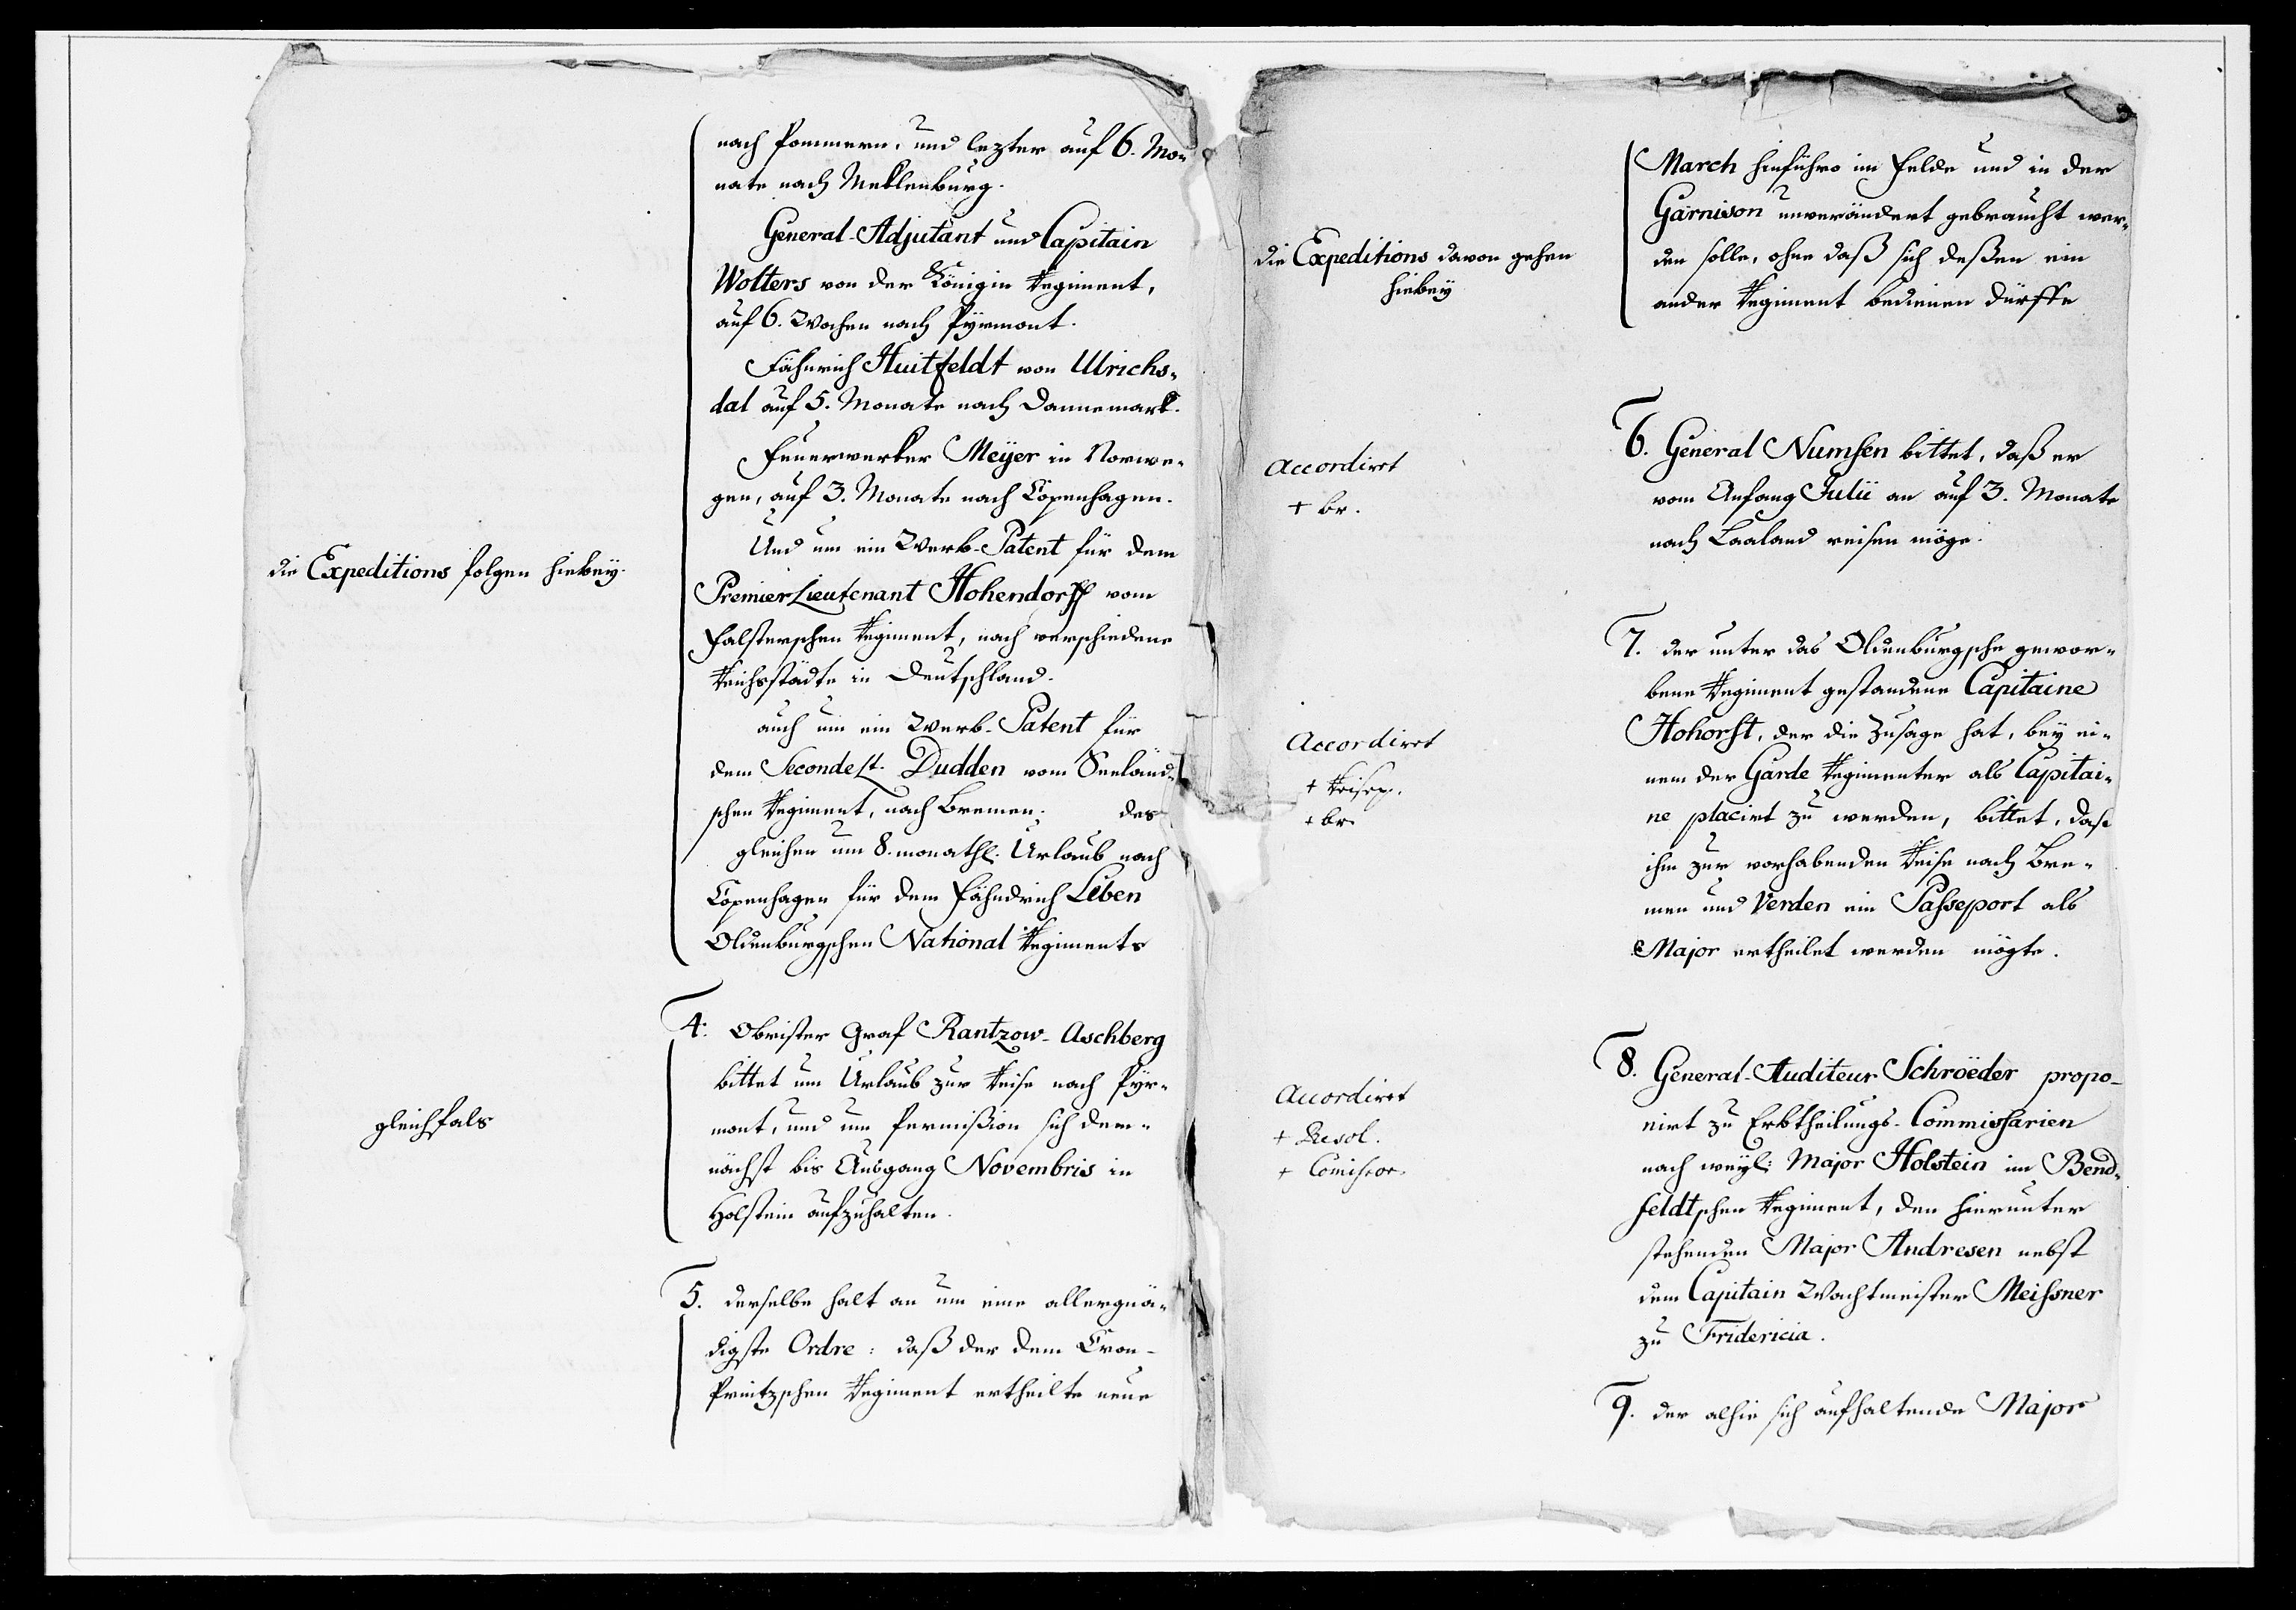 nach Pommern, und lezter auf 6. Mo-
nate nach Meklenburg.
General-Adjutant und Capitain
Wolters von der Königin Regiment,
auf 6. Wochen nach Pyrmont.
Fähnrich Huitfeldt von Ulrichs-
dal auf 5. Monate nach Dannemark.
Feuerwerker Meyer in Norwe-
gen, auf 3. Monate nach Copenhagen.
die Expeditions folgen hiebey.
Und um ein Werb-Patent für dem
Premier Lieutenant Hohendorff vom
Falsterschen Regiment, nach verschiedene
Reichsstädte in Deutschland.
auch um ein Werb-Patent für
dem Seconde Lt. Dudden vom Seeländ-
schen Regiment, nach Bremen; des
gleichen um 8. monathl. Urlaub nach
Copenhagen für dem Fähndrich Leben
Oldenburgschen National Regiments
4. Obrister Graf Rantzow-Aschberg
bittet um Urlaub zur Reise nach Pyr-
mont, und um Permißion sich dem-
nächst bis Ausgang Novembris in
Holstein aufzuhalten.
gleichfals
5. derselbe halt an um eine allergnä-
digste Ordre: daß der dem Cron-
Printzschen Regiment ertheilte neue
March hinführo im Felde und in der
Garnison unverändert gebraucht wer-
den solle, ohne daß sich deßen ein
ander Regiment bedienen dürffe
die Expeditions davon gehen
hiebey
6. General Numsen bittet, daß er
vom Anfang Julii an auf 3. Monate
nach Laaland reisen möge.
Accordirt
+ br.
7. der unter das Oldenburgsche gewor-
bene Regiment gestandene Capitaine
Hohorst, der die Zusage hat, bey ei-
nem der Garde Regimenter als Capitai-
ne placirt zu werden, bittet, daß
ihm zur vorhabenden Reise nach Bre-
men und Verden ein Passeport als
Major ertheilet werden mögte.
Accordirt
+ Reisep.
+ br.
8. General-Auditeur Schröeder propo-
nirt zu Erbtheilungs-Commissarien
nach weyl: Major Holstein im Bend-
feldtschen Regiment, den hierunter
stehenden Major Andresen nebst
dem Capitain Wachtmeister Meissner
zu Fridericia.
Accordirt
+ Resol.
+ Comissor.
9. der alhie sich aufhaltende Major